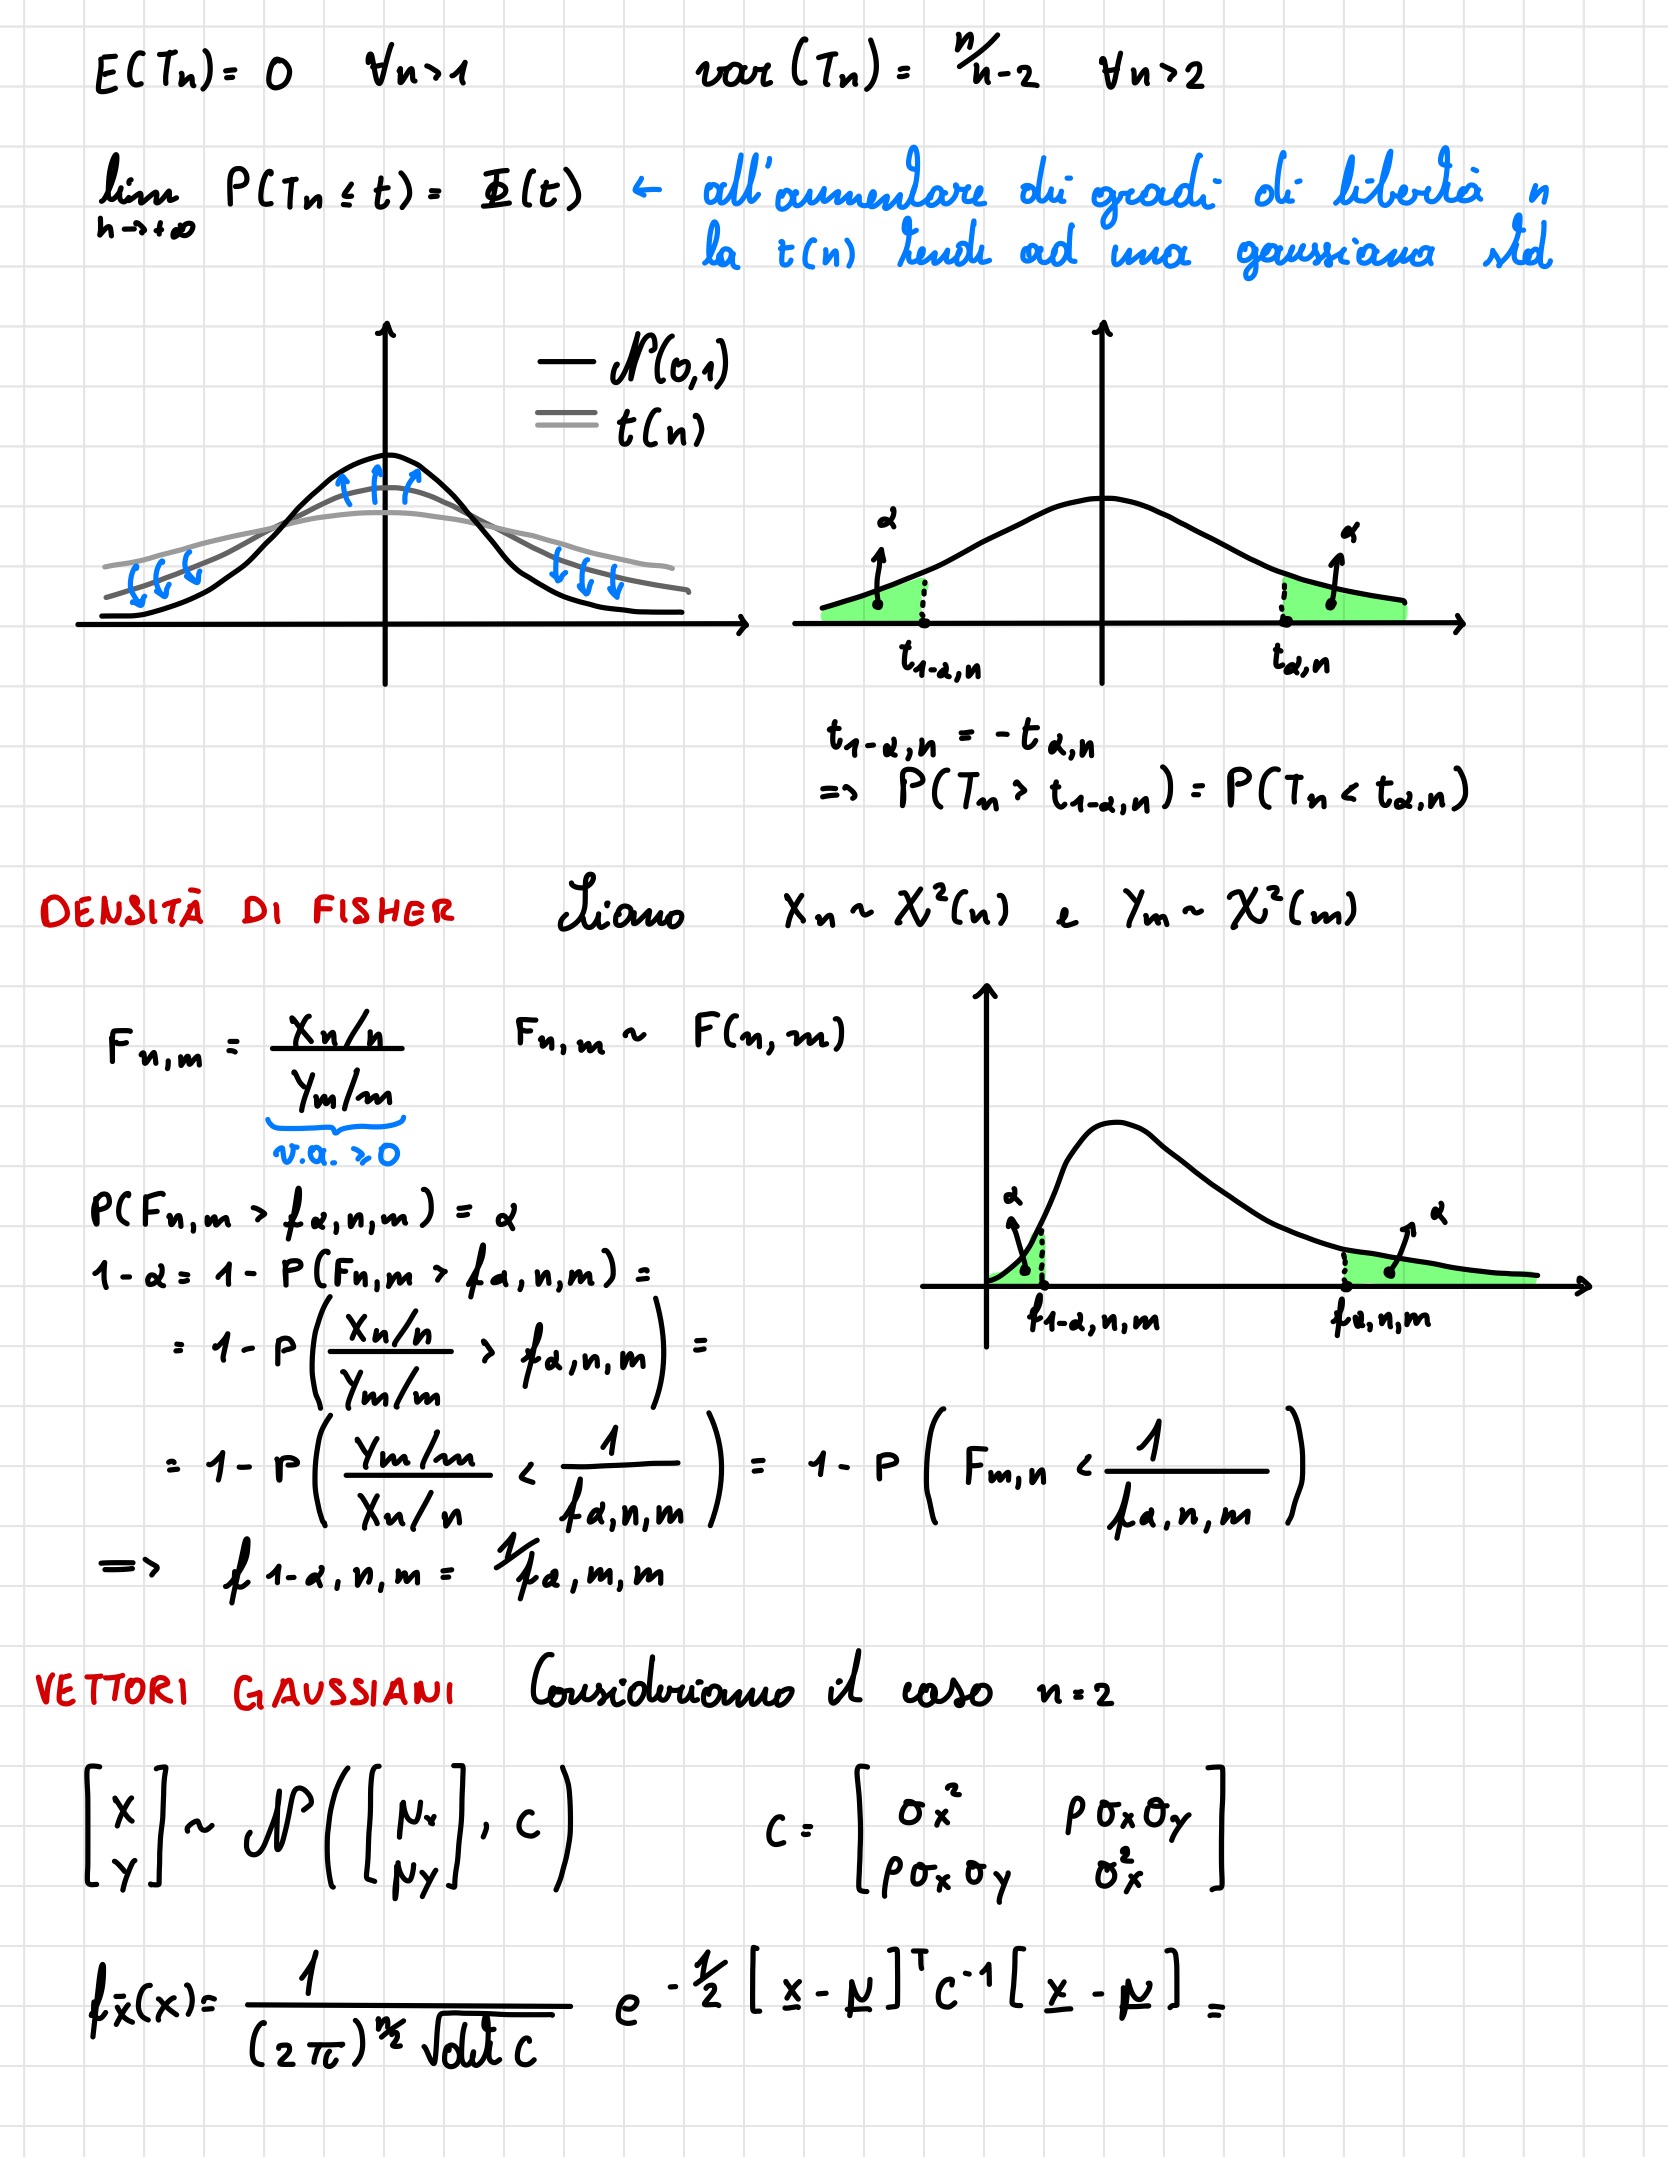 E(Tn) = 0 ∀n>1 var(Tn) = n/n-2 ∀n>2
lim n→+∞ P(Tn ≤ t) = Φ(t) ← all'aumentare dei gradi di libertà n
la t(n) tende ad una gaussiana std
N(0,1)
t(n)
α α
t1-α,n tα,n
t1-α,n = -tα,n
=> P(Tn > t1-α,n) = P(Tn < tα,n)
DENSITÀ DI FISHER Siano Xn ~ χ²(n) e Ym ~ χ²(m)
Fn,m = (Xn/n)/(Ym/m) Fn,m ~ F(n,m)
v.a. ≥ 0
P(Fn,m > fα,n,m) = α
1-α = 1 - P(Fn,m > fα,n,m) =
α α
f1-α,n,m fα,n,m
= 1 - P((Xn/n)/(Ym/m) > fα,n,m) =
= 1 - P((Ym/m)/(Xn/n) < 1/fα,n,m) = 1 - P(Fm,n < 1/fα,n,m)
=> f1-α,n,m = 1/fα,m,m
VETTORI GAUSSIANI Consideriamo il caso n=2
[X Y] ~ N([μx μy], C) C = [σx² ρσxσy ρσxσy σx²]
fx̄(x) = 1/((2π)^n/2 √det C) e^-1/2 [x-μ]^T C^-1 [x-μ] =